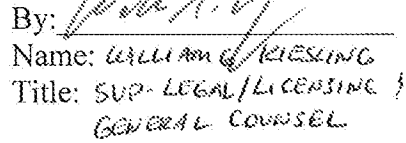 By:
Name: WILLIAM G KIESLING
Title: SVP-LEGAL/LICENSING &
GENERAL COUNSEL